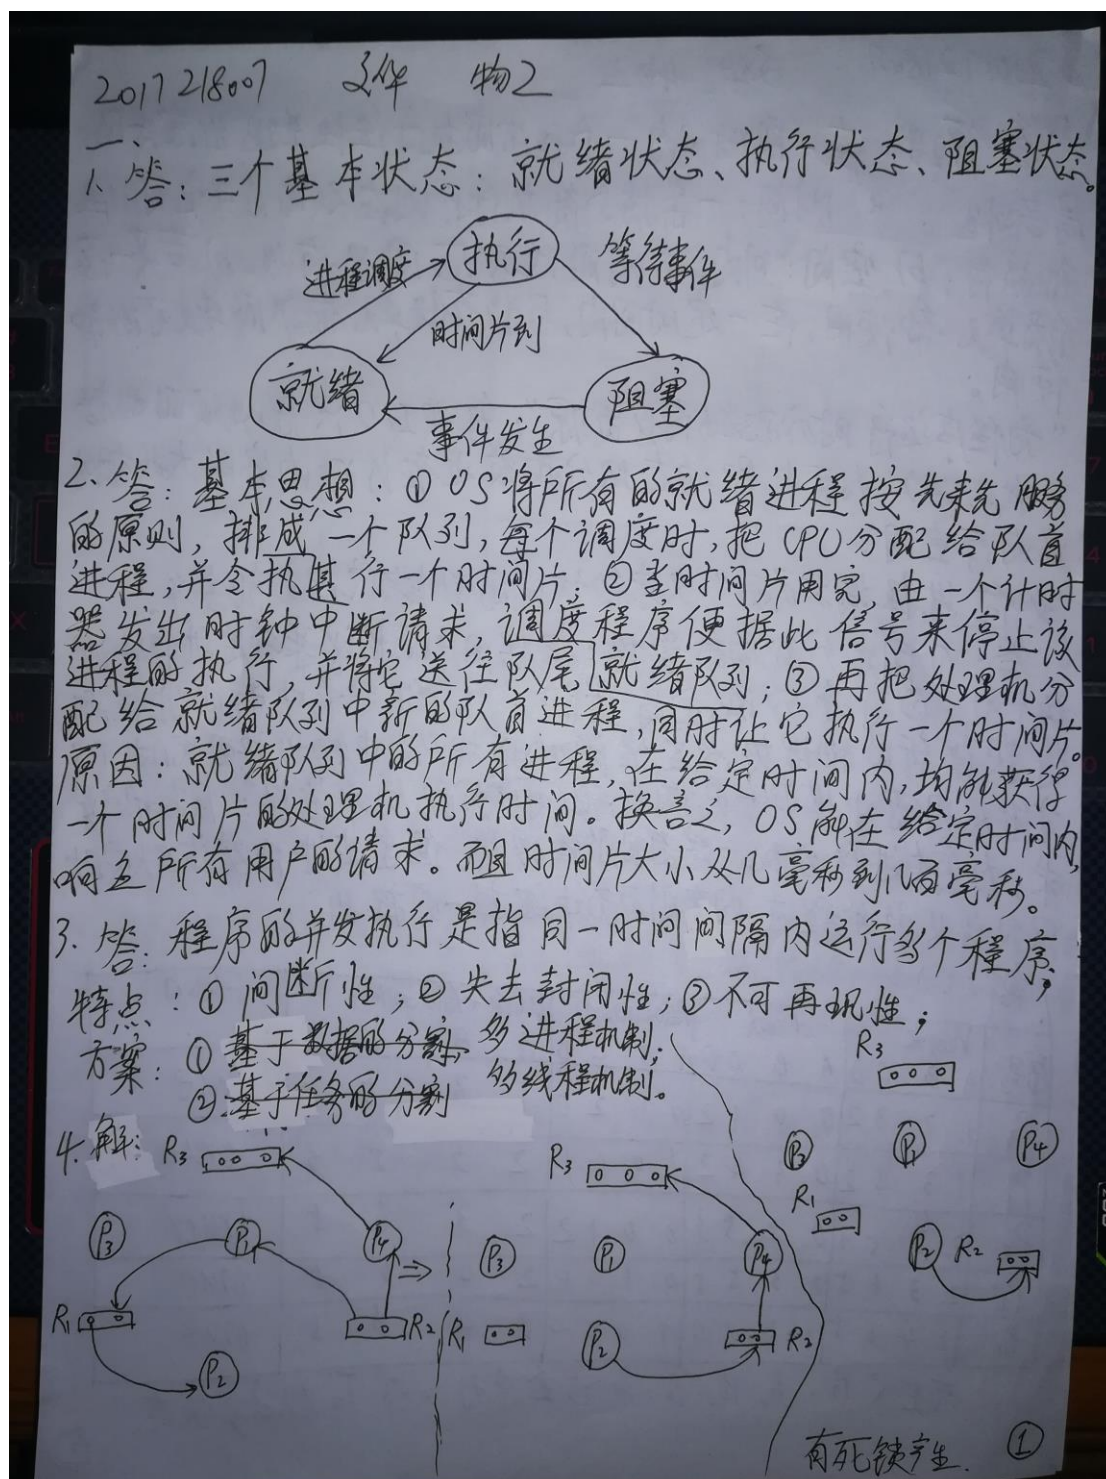 2017218007 物2
一、
1、答：三个基本状态：就绪状态、执行状态、阻塞状态。
执行
进程调度
等待事件
时间片到
就绪
阻塞
事件发生
2、答：基本思想：① OS将所有的就绪进程按先来先服务
的原则，排成一个队列，每个调度时，把CPU分配给队首
进程，并令执其行一个时间片；②当时间片用完，由一个计时
器发出时钟中断请求，调度程序便据此信号来停止该
进程的执行，并将它送往队尾就绪队列；③再把处理机分
配给就绪队列中新的队首进程，同时让它执行一个时间片。
原因：就绪队列中的所有进程，在给定时间内，均能获得
一个时间片的处理机执行时间。换言之，OS能在给定时间内，
响应所有用户的请求。而且时间片大小从几毫秒到几百毫秒。
3、答：程序的并发执行是指同一时间间隔内运行多个程序；
特点：①间断性；②失去封闭性；③不可再现性；
方案：①基于数据的分割，多进程机制；
②基于任务的分割 多线程机制。
4、解：
R3
P3 P1 P4
R1 R2
P2
⇒
R3
P3 P1 P4
R1
P2 R2
R3
P3 P1 P4
R1
P2 R2
有死锁产生. ①